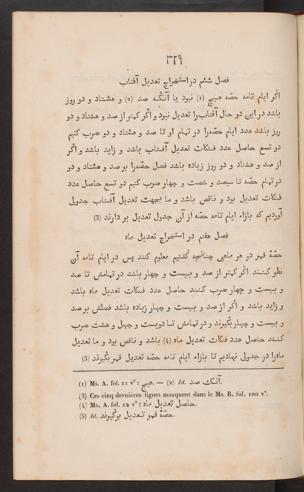 ٣٢٩
فصل ششم در استخراج تعديل آفتاب
اگر ايام تامه حصّه هيچ (1) نبود يا آنكه صد (2) و هشتاد و دو روز
باشد در اين دو حال آفتاب را تعديل نبود و اگر كمتر از صد و هشتاد و دو
روز باشد عدد ايام حصّه را در تمام او تا صد و هشتاد و دو ضرب كنيم
دو تسع حاصل عدد فنكات تعديل آفتاب باشد و زايد باشد و اگر
از صد و هشتاد و دو روز زياده باشد فصل حصّه را بر صد و هشتاد و دو
در تمام حصّه تا سيصد و شصت و چهار ضرب كنيم دو تسع حاصل عدد
فنكات تعديل بود و ناقص باشد و ما بجهت تعديل آفتاب جدولى
آورديم كه بازاء ايام تامه حصّه از آن جدول تعديل بر دارند (3)
فصل هفتم در استخراج تعديل ماه
حصّه قمر در هر ماهى چنانچه گفتيم معلوم كنند پس در ايام تامه آن
نظر كنند اگر كمتر از صد و بيست و چهار باشد در تمامش تا صد
و بيست و چهار ضرب كنند حاصل عدد فنكات تعديل ماه باشد
و زايد باشد و اگر از صد و بيست و چهار زياده باشد فصلش بر صد
و بيست و چهار بگيرند و در تمامش تا دويست و چهل و هشت ضرب
كنند حاصل عدد فنكات تعديل ماه (4) باشد و ناقص بود و ما تعديل
ماه را در جدولى نهاديم تا بازاء ايام تامه حصّه تعديل قمر بگيرند (5)
(1) Ms. A. fol. 11 v° : هيچى. — (2) Id. آنك صد.
(3) Ces cinq dernières lignes manquent dans le Ms. B. fol. 100 v°.
(4) Ms. A. fol. 12 v° : حاصل تعديل ماه.
(5) Id. حصّهٔ قمر تعديل برگيرند.